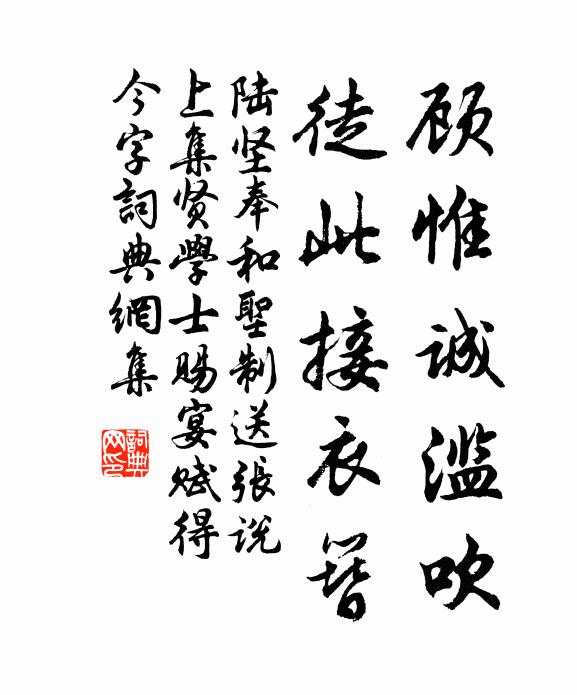 顾惟诚滥吹
徒此接衣簪
陆坚奉和聖制送张说
上集贤學士赐宴赋得
今字詞典網集
詞典
网印